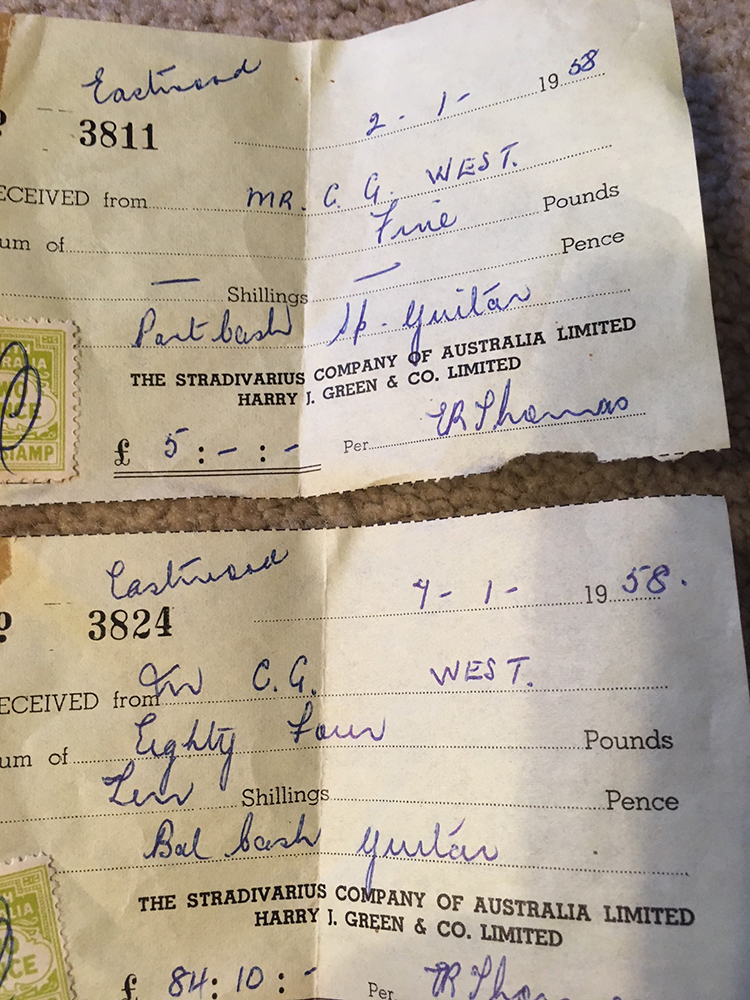 Eastwood
3811
2 - 1 - 1958
ECEIVED from MR. C. G. WEST.
um of Five Pounds
— Shillings — Pence
Part Cash Sp. Guitar
THE STRADIVARIUS COMPANY OF AUSTRALIA LIMITED
HARRY J. GREEN & CO. LIMITED
£ 5 : - : - Per ER Thomas
AMP
Eastwood
3824
7 - 1 - 1958.
ECEIVED from C. G. WEST.
um of Eighty Four Pounds
Ten Shillings Pence
Bal Cash Guitar
THE STRADIVARIUS COMPANY OF AUSTRALIA LIMITED
HARRY J. GREEN & CO. LIMITED
£ 84 : 10 : - Per